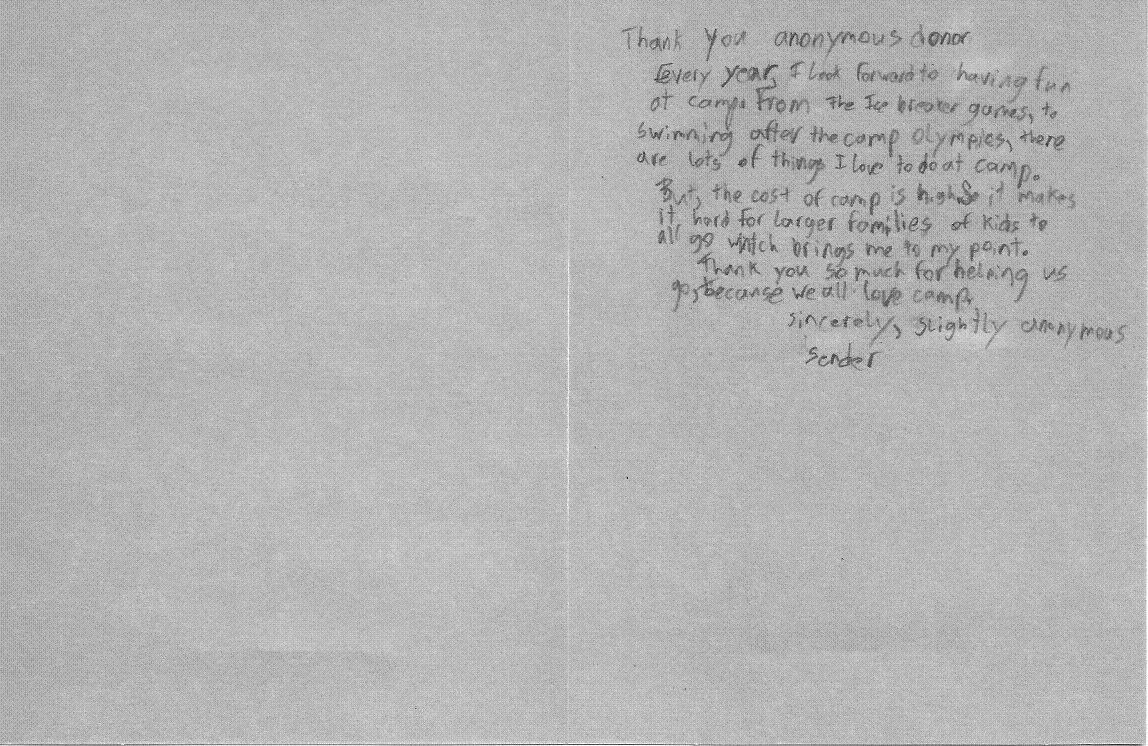 Thank you anonymous donor
Every year, I look forward to having fun
at camp. From the Ice breaker games, to
swimming after the camp olympics, there
are lots of things I love to do at camp.
But, the cost of camp is high So it makes
it hard for larger families of kids to
all go which brings me to my point.
Thank you so much for helping us
go, because we all love camp.
sincerely, slightly anonymous
sender